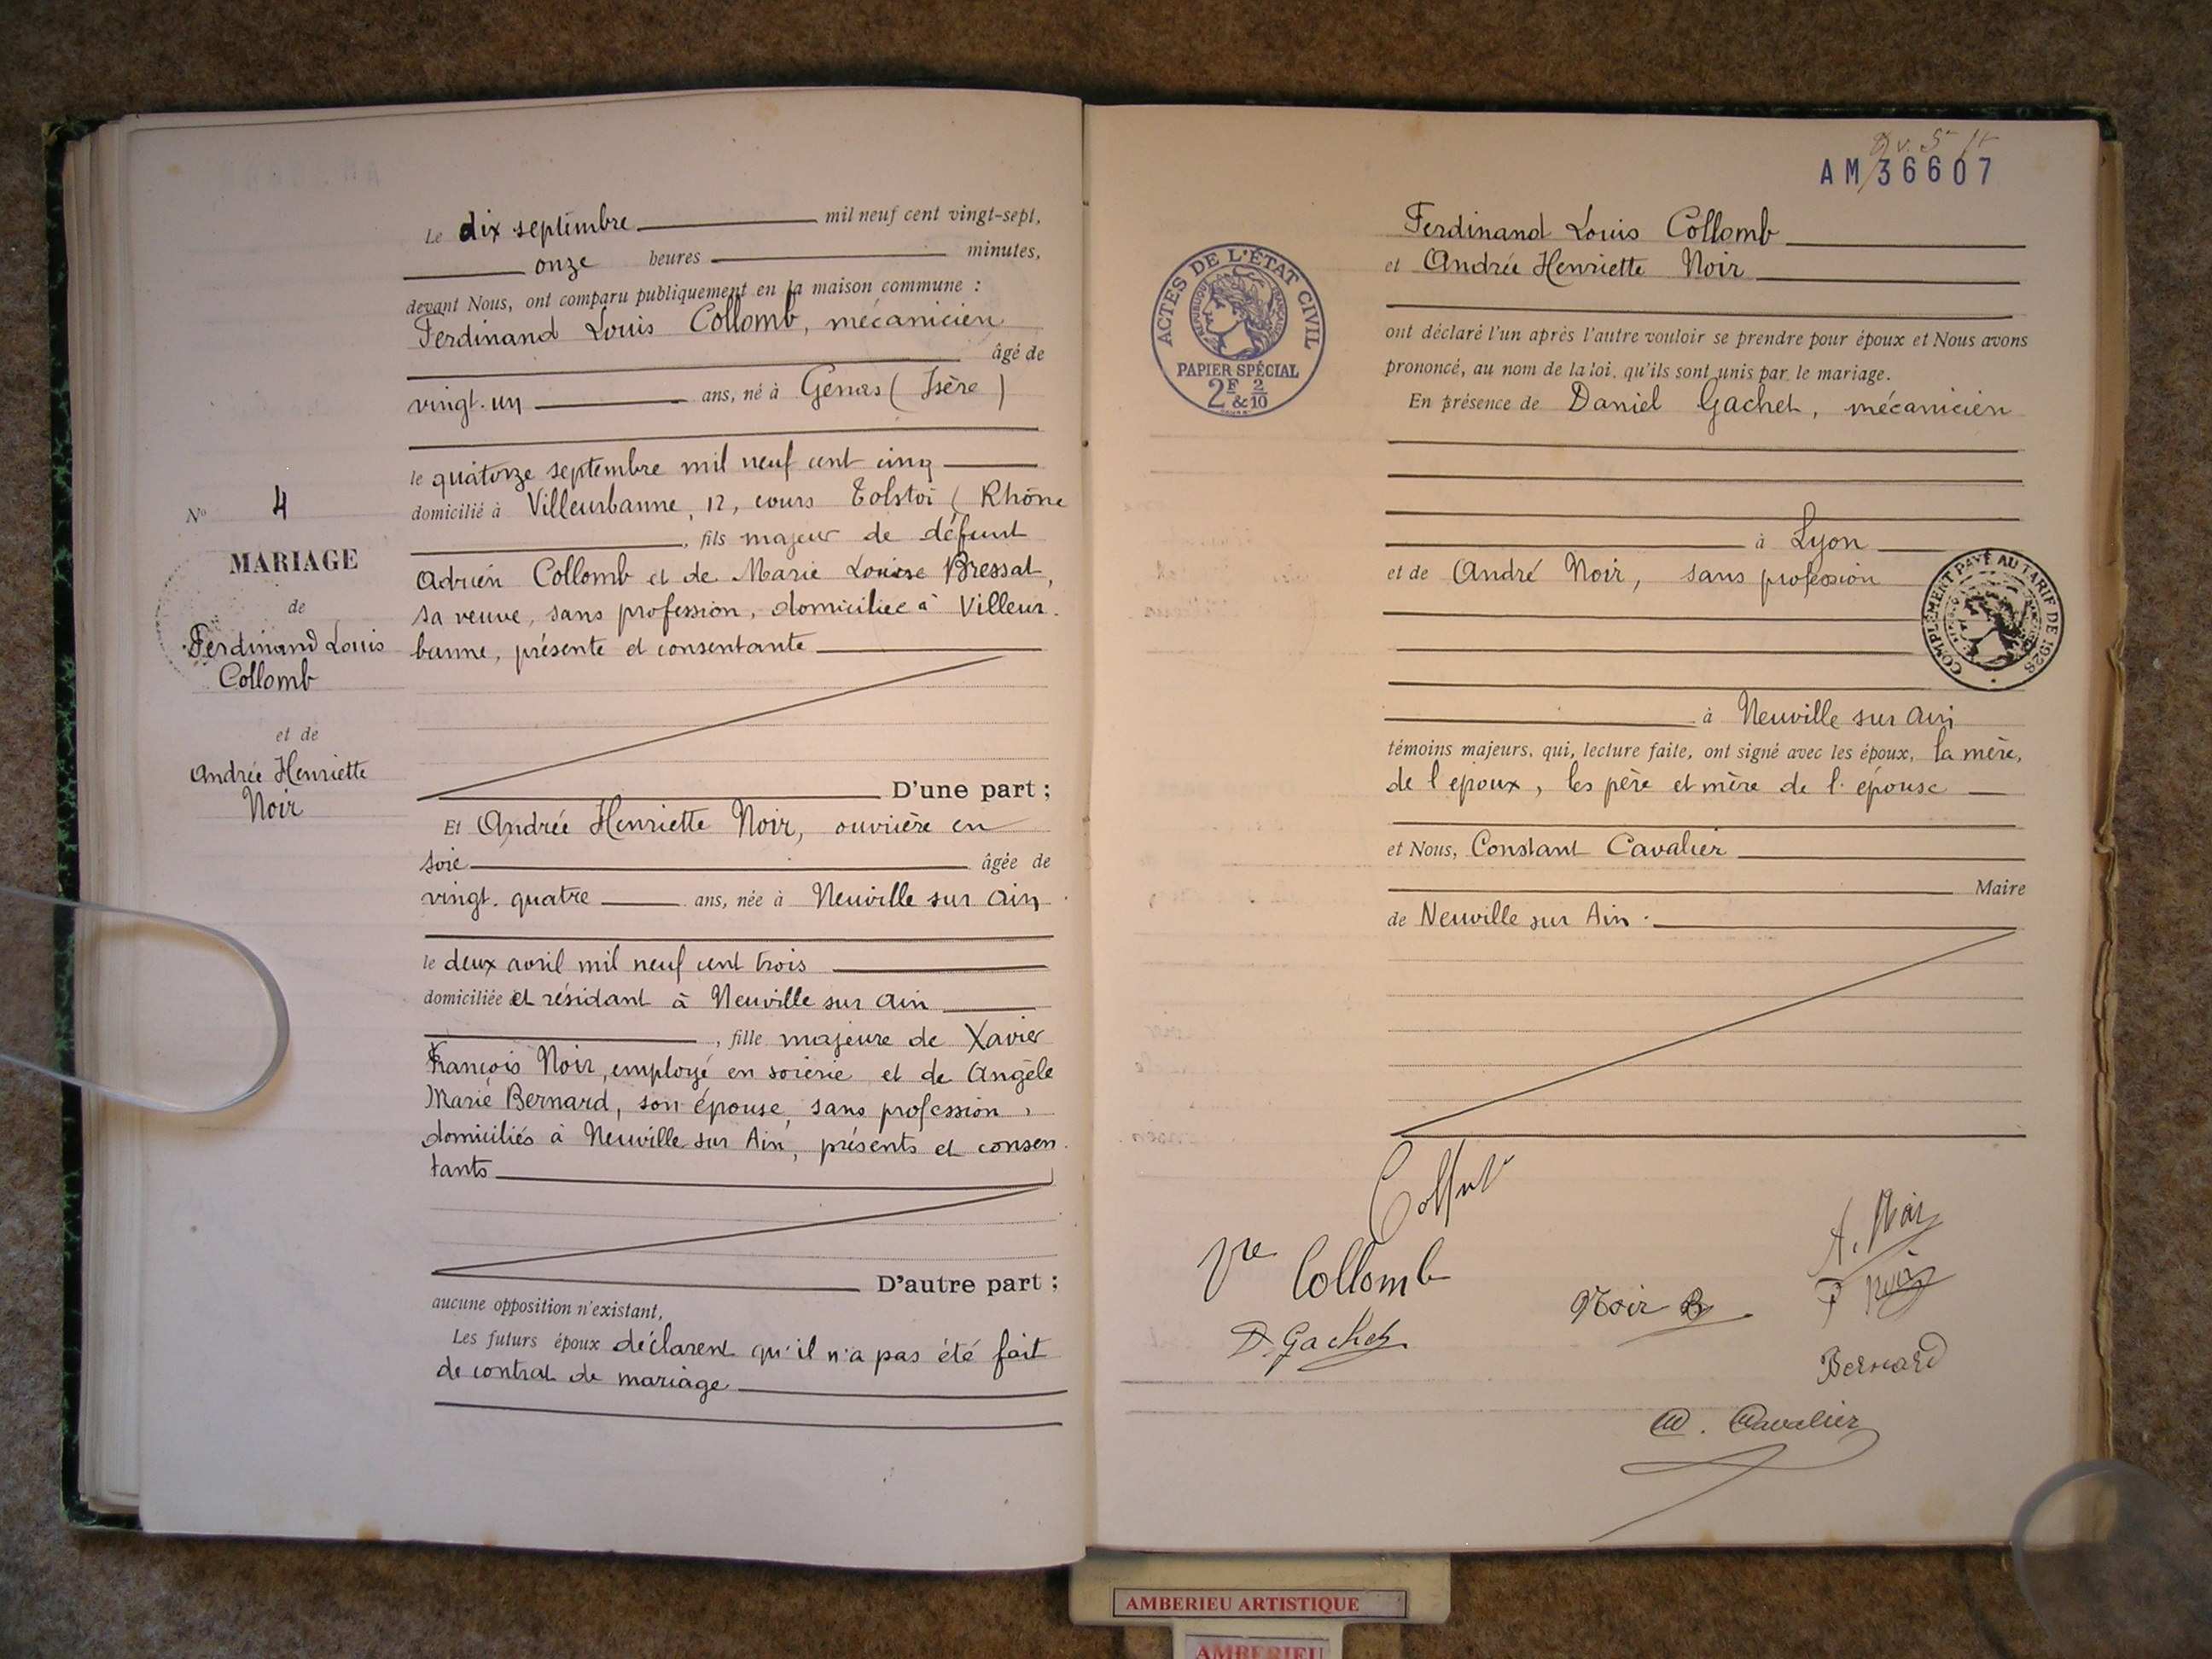 Le dix septembre mil neuf cent vingt-sept,
onze heures minutes,
devant Nous, ont comparu publiquement en la maison commune :
Ferdinand Louis Collomb, mécanicien
âgé de
vingt-un ans, né à Genas (Isère)
le quatorze septembre mil neuf cent cinq
domicilié à Villeurbanne, 12, cours Tolstoï (Rhône
, fils majeur de défunt
Adrien Collomb et de Marie Louise Bressat,
sa veuve, sans profession, domiciliée à Villeur-
banne, présente et consentante
D'une part ;
Et Andrée Henriette Noir, ouvrière en
soie âgée de
vingt-quatre ans, née à Neuville sur Ain
le deux avril mil neuf cent trois
domiciliée et résidant à Neuville sur Ain
, fille majeure de Xavier
François Noir, employé en soierie et de Angèle
Marie Bernard, son épouse, sans profession,
domiciliés à Neuville sur Ain, présents et consen-
tants
D'autre part ;
aucune opposition n'existant,
Les futurs époux déclarent qu'il n'a pas été fait
de contrat de mariage
N° 4
MARIAGE
de
Ferdinand Louis
Collomb
et de
Andrée Henriette
Noir
AM 36607
ACTES DE L'ÉTAT CIVIL
RÉPUBLIQUE FRANÇAISE
PAPIER SPÉCIAL
2F & 2/10
Ferdinand Louis Collomb
et Andrée Henriette Noir
ont déclaré l'un après l'autre vouloir se prendre pour époux et Nous avons
prononcé, au nom de la loi, qu'ils sont unis par le mariage.
En présence de Daniel Gachet, mécanicien
à Lyon
et de André Noir, sans profession
COMPLÉMENT PAYÉ AU TARIF DE 1928
à Neuville sur Ain
témoins majeurs, qui, lecture faite, ont signé avec les époux, la mère,
de l'époux, les père et mère de l'épouse
et Nous, Constant Cavalier
Maire
de Neuville sur Ain.
Vve Collomb
A. Noir
Noir
D. Gachet
Noir
Bernard
Cavalier
AMBERIEU ARTISTIQUE
AMBERIEU